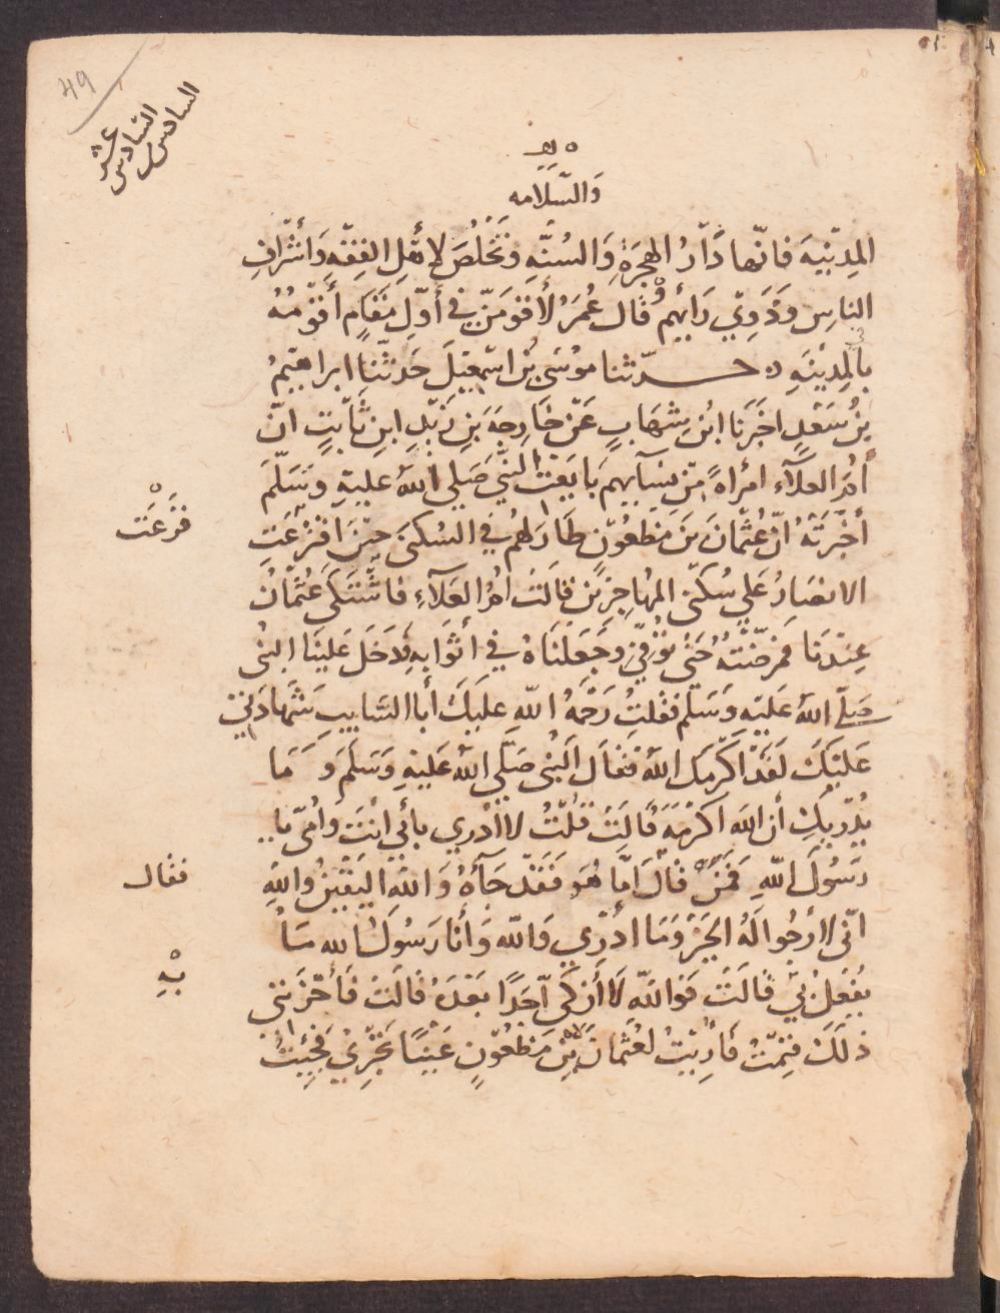 49
السادس
السادس
عشر
ه هـ
والسّلامه
المِديْنة فانّها دَارُ الهِجرَةِ وَالسُنَّهِ وتَخْلُصَ لاَهْلِ الفِقْهِ وَأشْرَافِ
الناسِ وذَوِي رَأيِهم وقال عُمَرُ لأقومَنّ في أوّلِ مَقَامٍ أقوْمُهُ
بالمدِيْنَهِ ه حــدّثنا موُسَى بْنُ اسْمعِيْلَ حَدثنا ابراهيْمُ
بنُ سَعْدٍ اخبَرَنا ابْن شِهَابٍ عَن خَارِجَةَ بَنِ زَيْدِ ابنِ ثَابتٍ انّ
أمّ العلآء امرأةً مّن نِسآيهم بَايَعَت النبّي صَلي اللهُ عليهِ وسَلّمَ
أخْبَرَتْهُ انّ عُثْمَانَ بَنَ مظعُوْنٍ طَارَ لهُم في السُكنَى حِيْنَ اقْرَعَتِ
قرَعْت
الانصَارُ عَلي سُكنَى المهُاجِرِيْن قَالَتْ امُّ العَلآءِ فاشْتكَى عُثْمَانُ
عِنْدَنا فمَرضّتُهُ حَتى توُفِّيَ وجَعَلنَاهُ في أثوَابِهِ فَدَخَلَ عَلينَا النبُى
صَلّى اللهُ عَليْهِ وَسَلّم فقلتُ رَحْمَةُ اللهِ عليَكَ أبا السَّايبِ شَهادَتي
عَليْكَ لَقدْ اكرَمكَ اللهُ فقَالَ النَبُى صَلّي اللهُ عَليهِ وَسَلمَ وَمَا
يُدْريكِ أن اللهَ اكرمَه قَالَتْ قلْتُ لا ادْري بابَي انْتَ وأمّي يا
رَسُولَ اللهِ فَمَنْ قالَ امَّا هُوَ فَقَدْ جَآهُ وَ اللهِ اليَقْيْنُ واللهِ
فقال
انّى لاأرْجُوا لَهُ الخيْرَ وَمَا ادْرِي وَالله وَ أنَا رَسُولُ الله مَا
يفعَلُ بيْ قالَتْ فوَالله لَا أزكى أحَدًا بَعْدَهُ قالَتْ فَأحْزَنَنى
بْهِ
ذلَكَ فنِمْتُ فَأُريْتُ لعُثمانَ بْنِ مَظْعُوْنٍ عَيْنًا تَجْرِيْ فَجِيْتُ